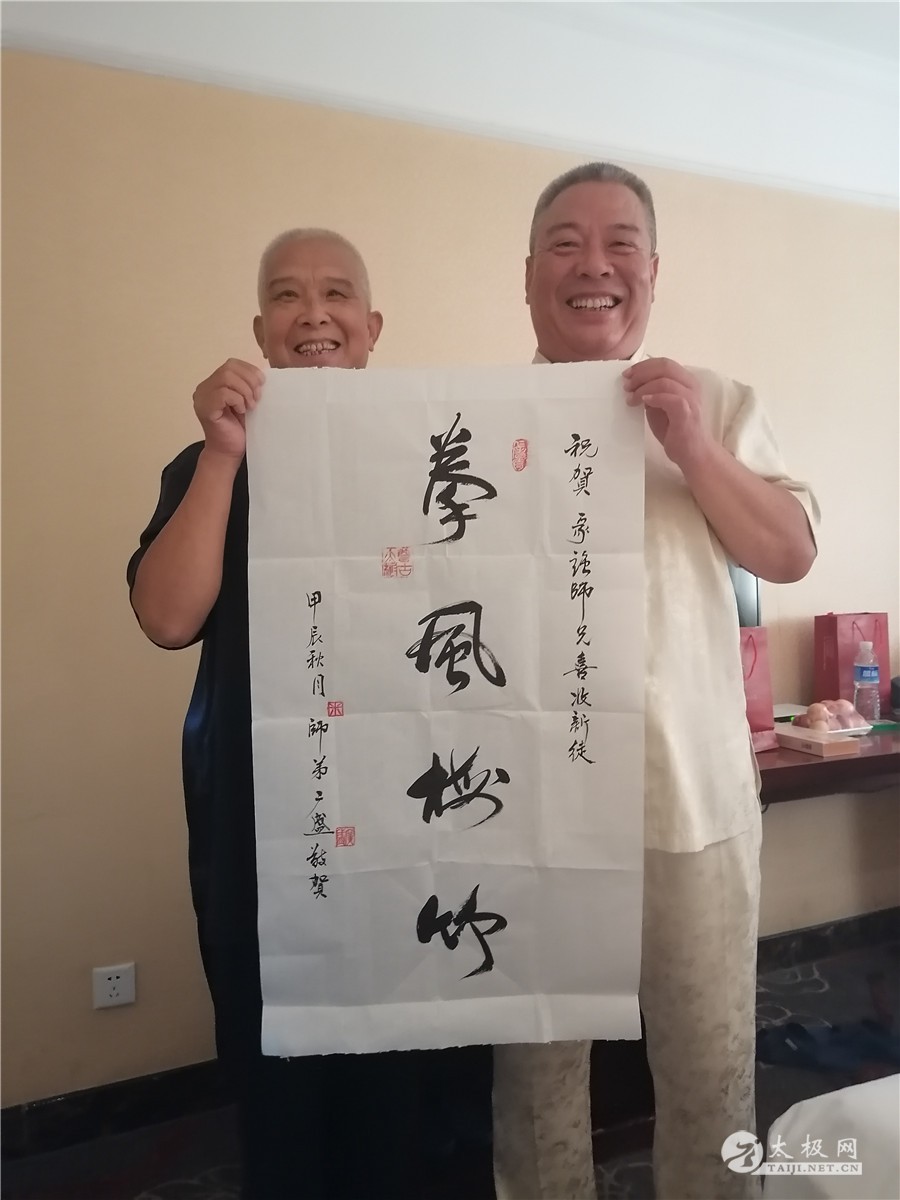 祝賀 家強師兄喜收新徒
拳風梅竹
甲辰秋月 師弟二盛敬賀
太极网
TAIJI.NET.CN